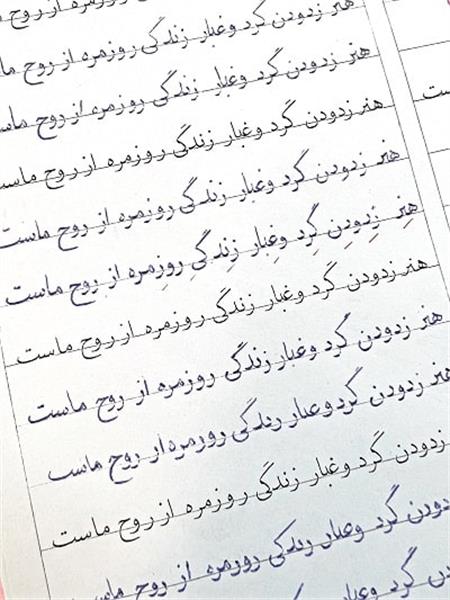 هنر زدودن گرد و غبار زندگی روزمره
هنر زدودن گرد و غبار زندگی روزمره از روح ما
هنر زدودن گرد و غبار زندگی روزمره از روح ماست
هنر زدودن گرد و غبار زندگی روزمره از روح ماست
هنر زدودن گرد و غبار زندگی روزمره از روح ماست
هنر زدودن گرد و غبار زندگی روزمره از روح ماست
هنر زدودن گرد و غبار زندگی روزمره از روح ماست
هنر زدودن گرد و غبار زندگی روزمره از روح ماست
هنر زدودن گرد و غبار زندگی روزمره از روح ماست
زدودن گرد و غبار زندگی روزمره از روح ماست
گرد و غبار زندگی روزمره از روح ماست